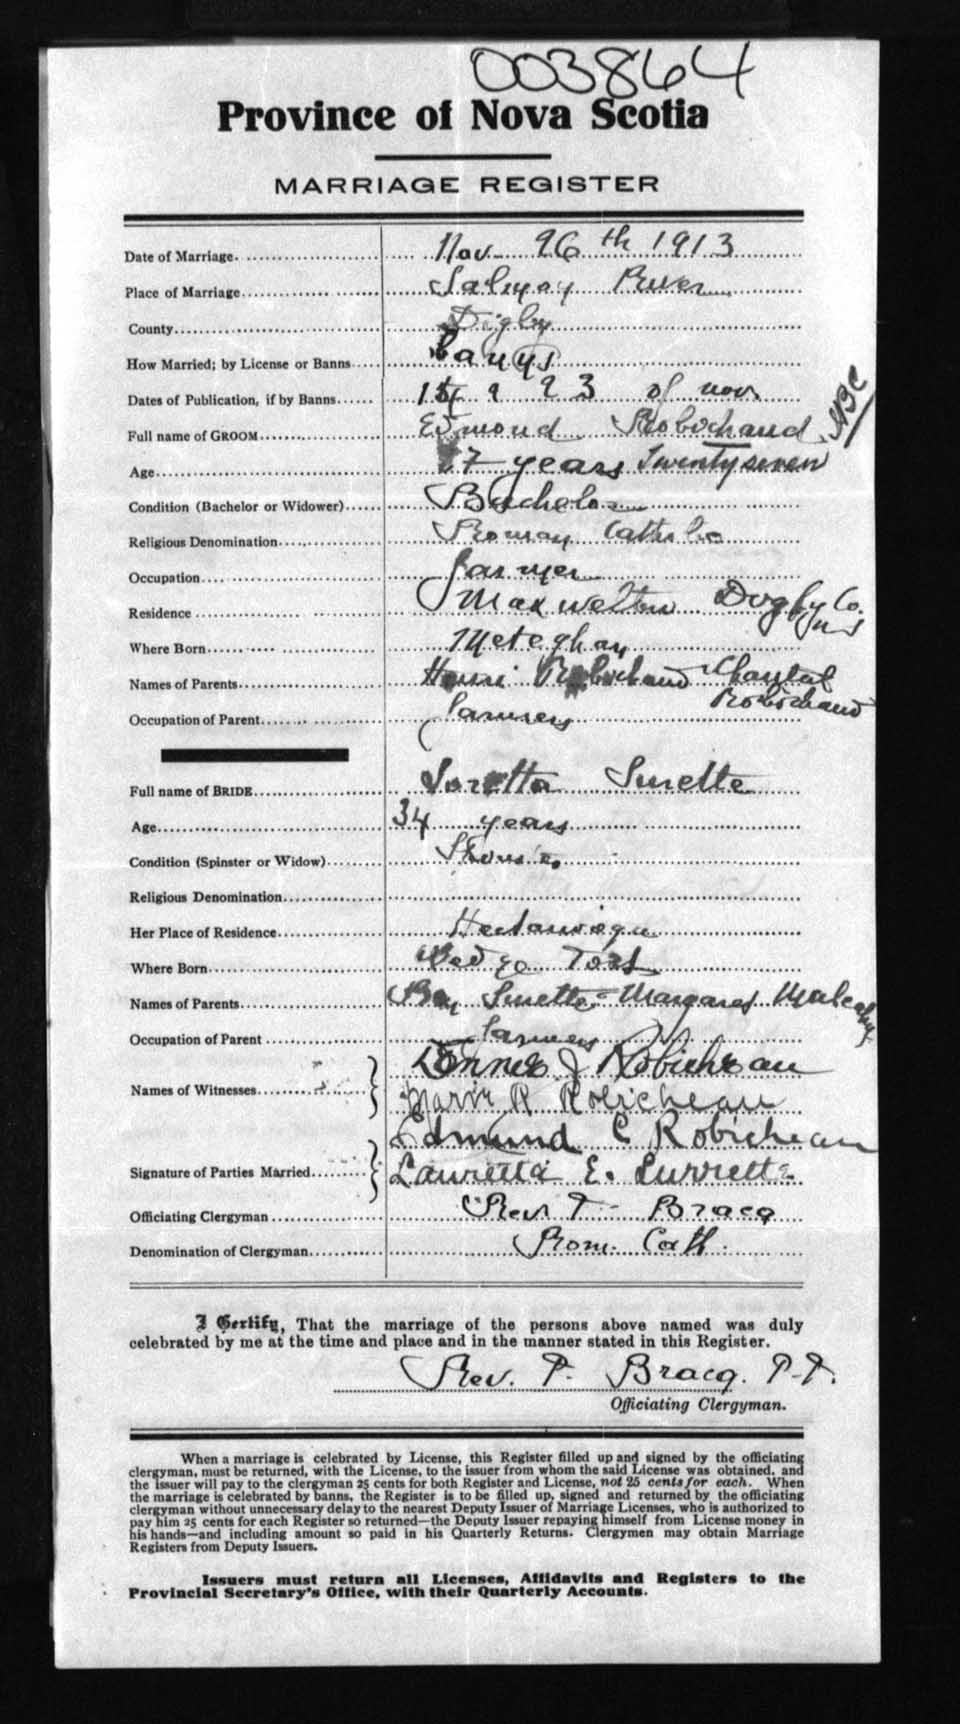 003864
Province of Nova Scotia
MARRIAGE REGISTER
Date of Marriage Nov. 26th 1913
Place of Marriage Salmon River
County Digby
How Married; by License or Banns Banns
Dates of Publication, if by Banns 9 23 of nov
Full name of GROOM Edmond Robichaud
Age 27 years Twenty seven
Condition (Bachelor or Widower) Bachelor
Religious Denomination Roman Catholic
Occupation farmer
Residence Maxwelton Digby Co. NS
Where Born Meteghan
Names of Parents Henri Robichaud Chantal Robichaud
Occupation of Parent farmer
Full name of BRIDE Loretta Surette
Age 34 years
Condition (Spinster or Widow)
Religious Denomination
Her Place of Residence Hectanooga
Where Born Wedge
Names of Parents Surette - Margaret
Occupation of Parent farmer
Names of Witnesses Dennis J Robicheau
R Robicheau
Edmund C Robicheau
Signature of Parties Married Lauretta E. Surrette
Officiating Clergyman Rev P. Bracq
Denomination of Clergyman Rom. Cath.
I Certify, That the marriage of the persons above named was duly
celebrated by me at the time and place and in the manner stated in this Register.
Rev. P. Bracq. P.P.
Officiating Clergyman.
When a marriage is celebrated by License, this Register filled up and signed by the officiating
clergyman, must be returned, with the License, to the issuer from whom the said License was obtained, and
the issuer will pay to the clergyman 25 cents for both Register and License, not 25 cents for each. When
the marriage is celebrated by banns, the Register is to be filled up, signed and returned by the officiating
clergyman without unnecessary delay to the nearest Deputy Issuer of Marriage Licenses, who is authorized to
pay him 25 cents for each Register so returned—the Deputy Issuer repaying himself from License money in
his hands—and including amount so paid in his Quarterly Returns. Clergymen may obtain Marriage
Registers from Deputy Issuers.
Issuers must return all Licenses, Affidavits and Registers to the
Provincial Secretary's Office, with their Quarterly Accounts.